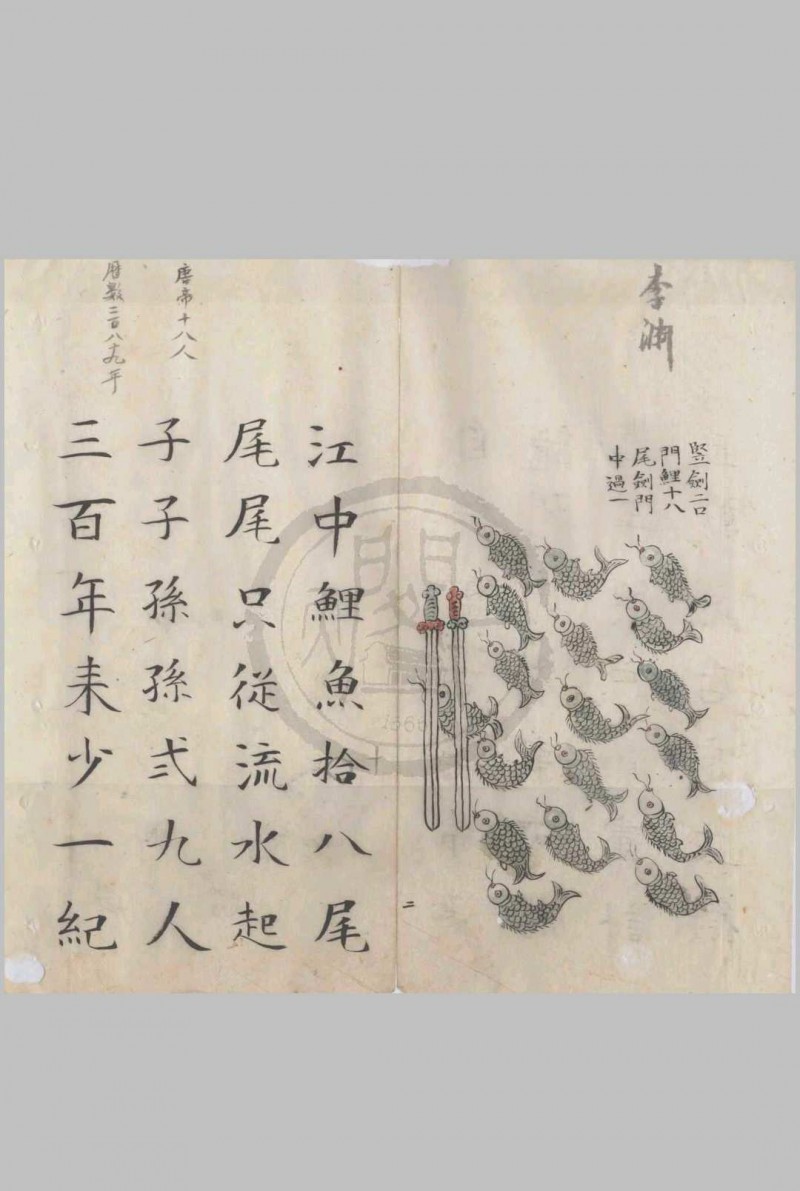 李渊
竖劍二口
門鯉十八
尾劍門
中過一
二
江中鯉魚拾八尾
尾尾只從流水起
子子孫孫弍九人
三百年来少一紀
唐帝十八人
曆數二百八十九年
1866